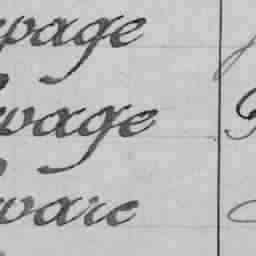 page
wage
ware